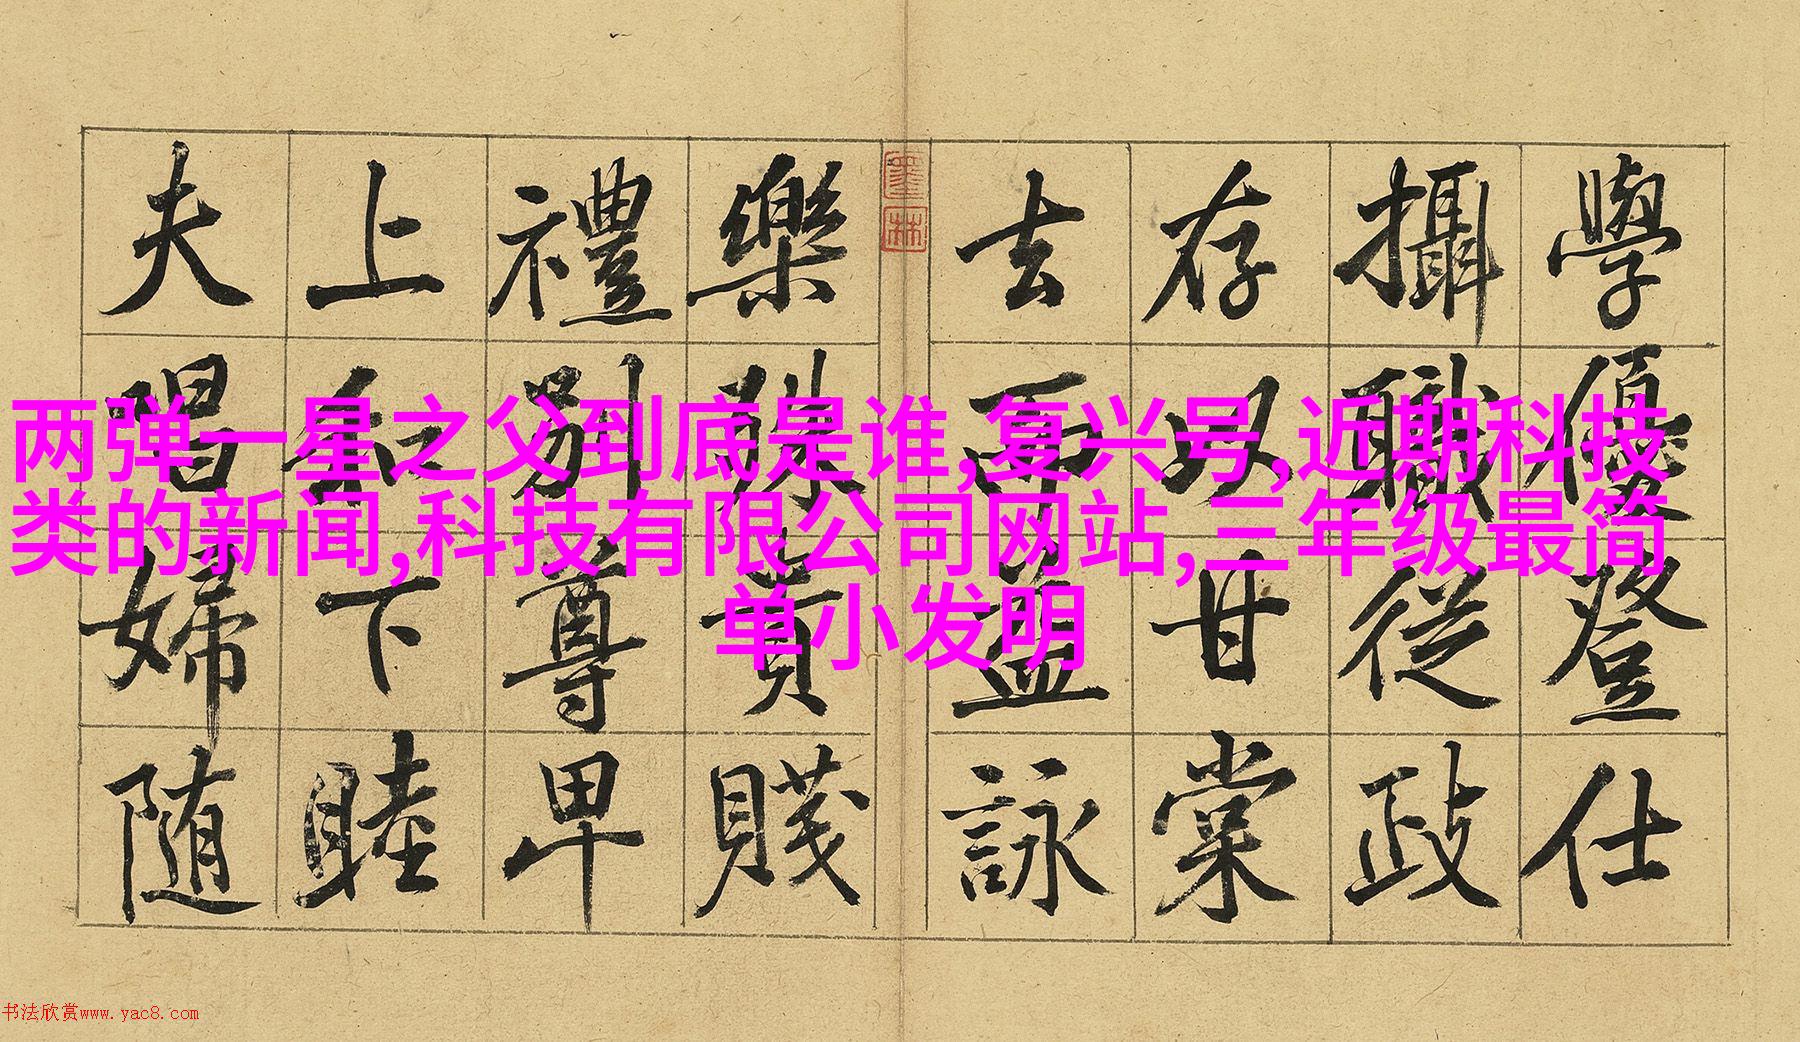 两弹一星之父到底是谁,复兴号,近期科技
类的新闻,科技有限公司网站,三年级最简
单小发明
學優登仕
攝職從政
存以甘棠
去而益詠
墨林
樂殊貴賤
禮別尊卑
上和下睦
夫唱婦随
书法欣赏www.yac8.com